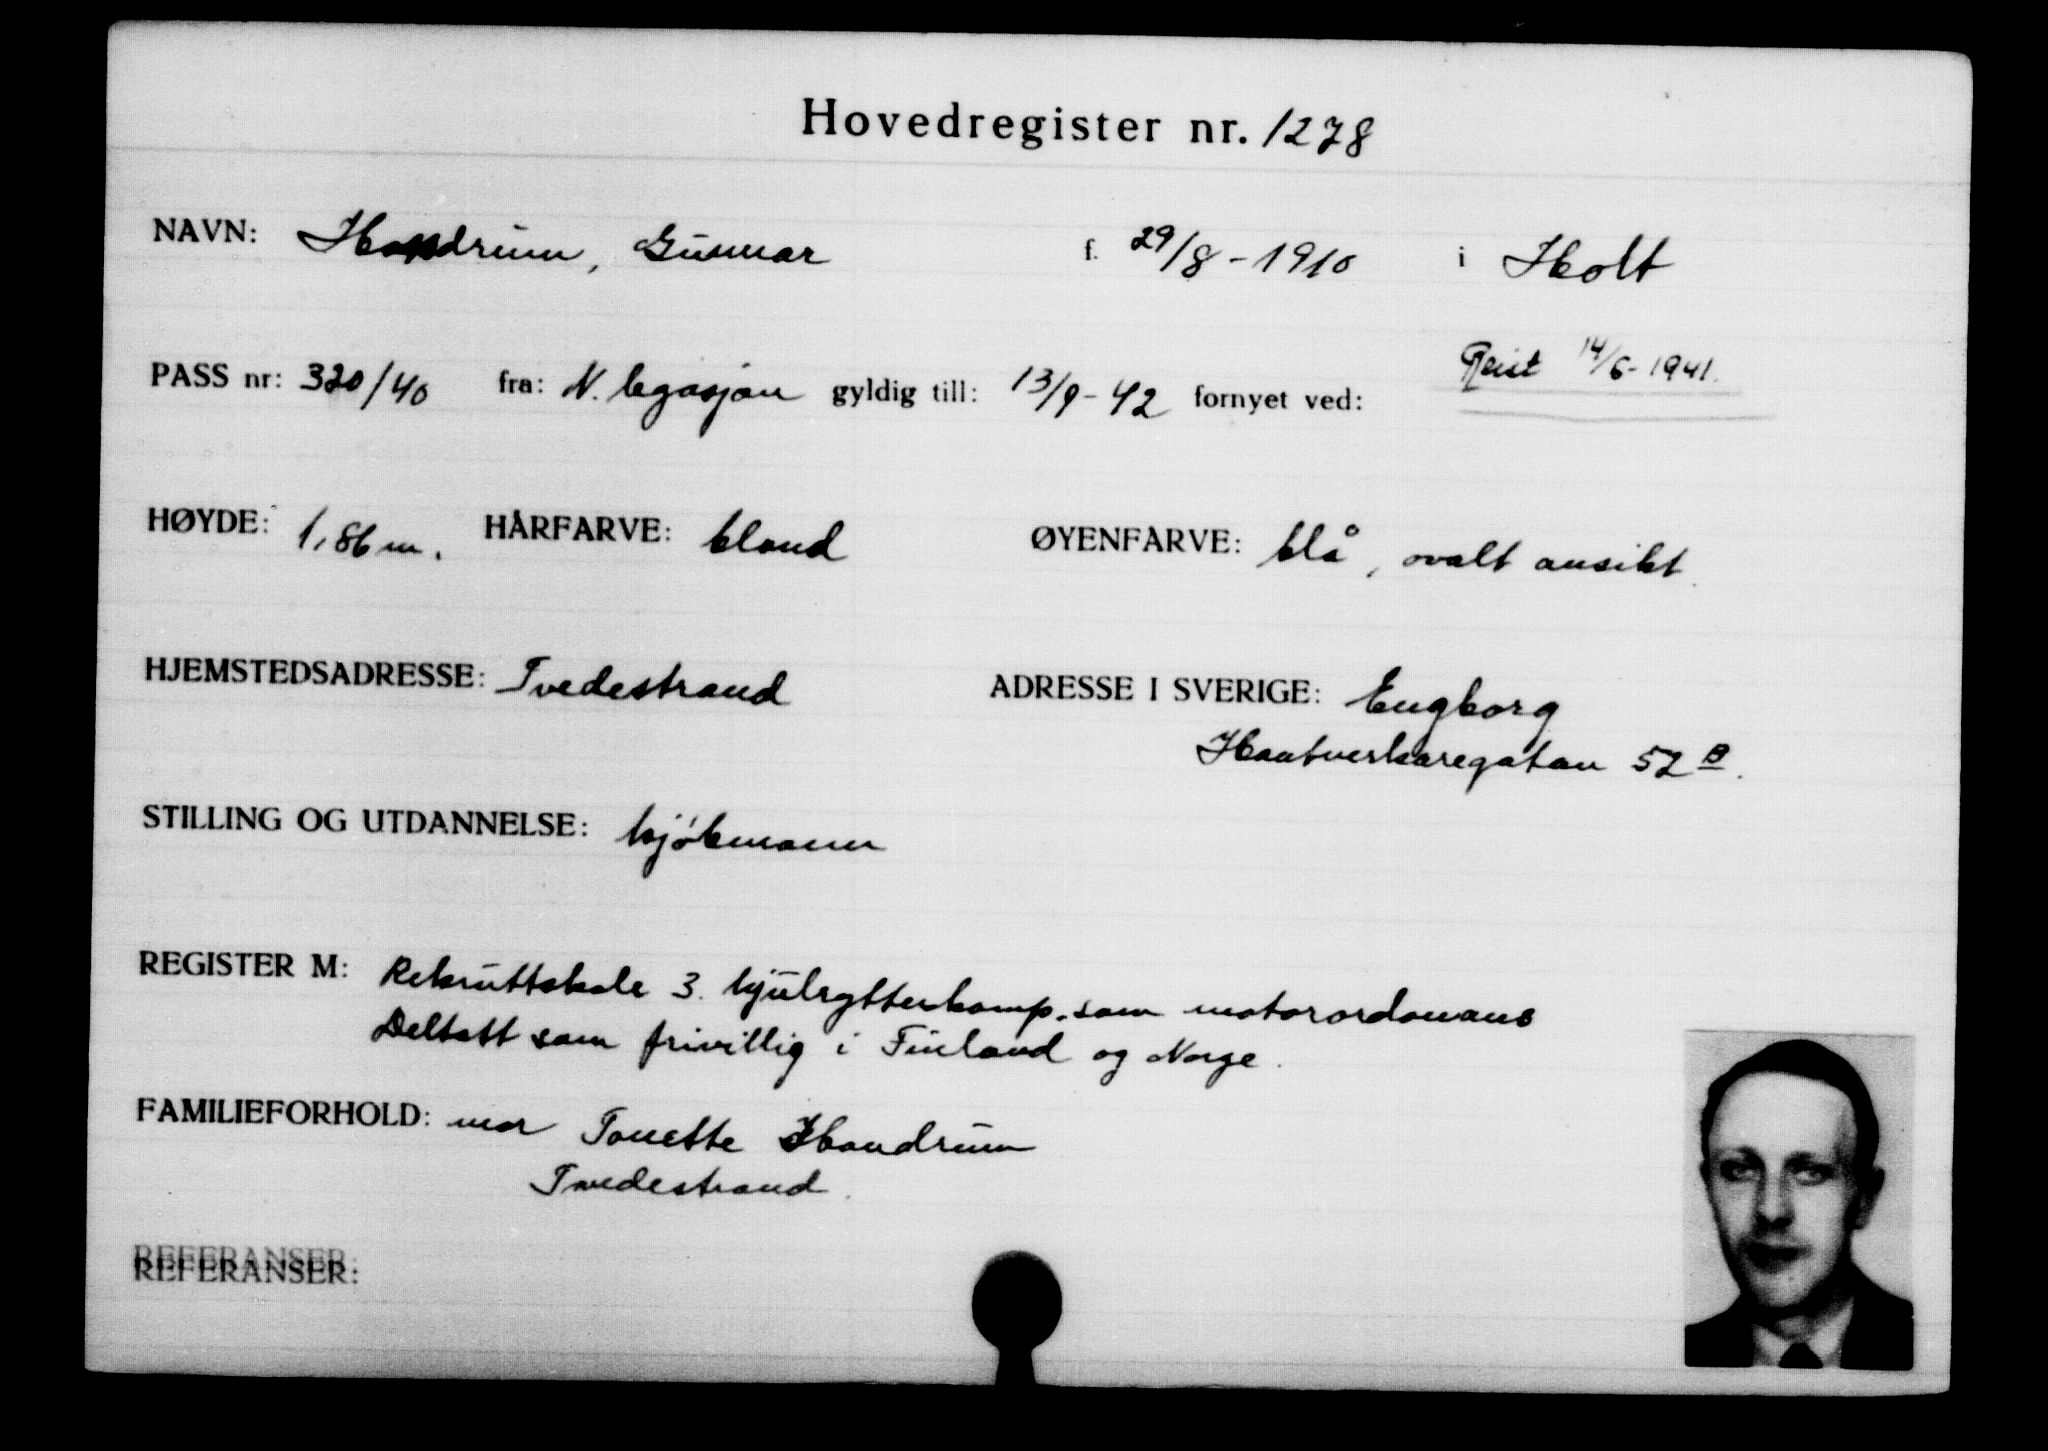 Hovedregister nr. 1278
NAVN: Handrum, Gunnar f. 29/8-1910 i Holt
Reist 14/6-1941.
PASS nr: 320/40 fra: N. legasjon gyldig till: 13/9-42 fornyet ved:
HØYDE: 1,86 m. HÅRFARVE: blond ØYENFARVE: blå, ovalt ansikt.
HJEMSTEDSADRESSE: Tvedestrand ADRESSE I SVERIGE: Engborg
Hantverkaregatan 52 B.
STILLING OG UTDANNELSE: kjøbmann
REGISTER M: Rekruttskole 3. hjulrytterkomp. som motorordonans
Deltatt som frivillig i Finland og Norge.
FAMILIEFORHOLD: mor Tonette Handrum
Tvedestrand.
REFERANSER:
REFERANSER: